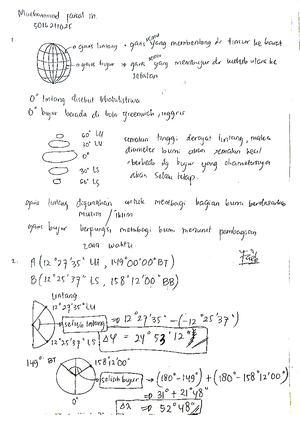 Muhammad
5016211025
1.
garis lintang : garis yang membentang dr timur ke barat
garis bujur : garis yang membujur dr kutub utara ke
selatan
0° lintang disebut khatulistiwa
0° bujur berada di kota greenwich, inggris
60° LU
30° LU
0°
30° LS
60° LS
semakin tinggi derajat lintang, maka
diameter bumi akan semakin kecil
berbeda dg bujur yang diameternya
akan selalu tetap.
garis lintang digunakan untuk membagi bagian bumi berdasarkan
musim / iklim
garis bujur berfungsi membagi bumi menurut pembagian
zona waktu
2. A (12°27'35" LU, 149°00'00" BT)
B (12°25'37" LS, 158°12'00" BB)
lintang
12°27'35" LU
12°25'37" LS
selisih lintang ⇒ 12°27'35" - (-12°25'37")
Δφ = 24°53'12"
149° BT
158°12'00"
0°
selisih bujur → (180° - 149°) + (180° - 158°12'00")
⇒ 31° + 21°48"
Δλ ⇒ 52°48"